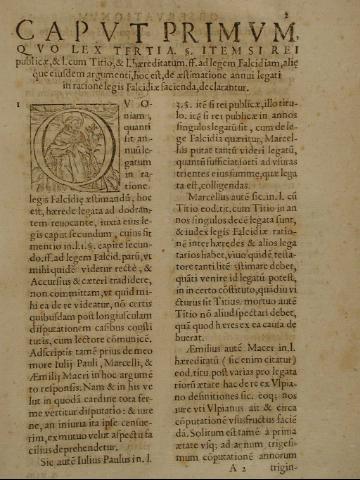 2
CAPVT PRIMVM,
QVO LEX TERTIA. §. ITEM SI REI
publicæ, & l. cum Titio, & l. hæreditatum. ff. ad legem Falcidiam, aliæ
que eiusdem argumenti, hoc est, de æstimatione annui legati
in ratione legis Falcidiæ facienda, declarantur.
1
QVO
niam,
quanti
sit an-
nuũ le-
gatum
in ra-
tione
legis Falcidiæ æstimandũ, hoc
est, hærede legata ad dodran-
tem reuocante, iuxta eius le-
gis caput secundum, cuius fit
mentio in.l.1.§. capite secun-
do. ff. ad legem Falcid. parũ, vt
mihi quidẽ videtur rectè, &
Accursius & cæteri tradidere,
non committam, vt quid mi-
hi ea de re videatur, nõ certis
quibusdam post longiusculam
disputationem casibus consti
tutis, cum lectore cõmunicẽ.
Adscriptis tamẽ prius de me-
more Iulij Pauli, Marcelli, &
Æmilij Macri in hoc argumẽ
to responsis: Nam & in his ve
lut in quodã cardine tota fer-
me vertitur disputatio: & iure
ne, an iniuria ita ipse censue-
rim, ex mutuo velut aspectu fa
cilius deprehendetur.
Sic autẽ Iulius Paulus in.l.
3.§. itẽ si rei publicæ, illo titu-
lo. itẽ si rei publicæ in annos
singulos legatũ sit, cum de le-
ge Falcidia quæritur, Marcel-
lus putat tantũ videri legatũ,
quantũ sufficiat sorti ad vsuras
trientes eius summæ, quæ lega
ta est, colligendas.
Marcellus autẽ sic.in.l. cũ
Titio eod.tit.cum Titio in an
nos singulos decẽ legata sunt,
& iudex legis Falcidiæ ratio-
nẽ inter hæredes & alios lega
tarios habet, viuo quidẽ testa-
tore tanti litẽ æstimare debet,
quãti venire id legatũ potest,
in incerto cõstituto, quãdiu vi
cturus sit Titius. mortuo autẽ
Titio nõ aliud spectari debet,
quã quod hæres ex ea causa de
buerat.
Æmilius autẽ Macer in.l.
hæreditatũ (sic enim citatur)
eod.titu.post varias pro legata
riorũ ætate hac de re ex Vlpia
no definitiones sic. eoq; nos
iure vti Vlpianus ait & circa
cõputationẽ vsusfructus faciẽ
dã. Solitum est tamẽ à prima
ætate vsq; ad annum trigesi-
mum cõputationẽ annorum
A 2
trigin-